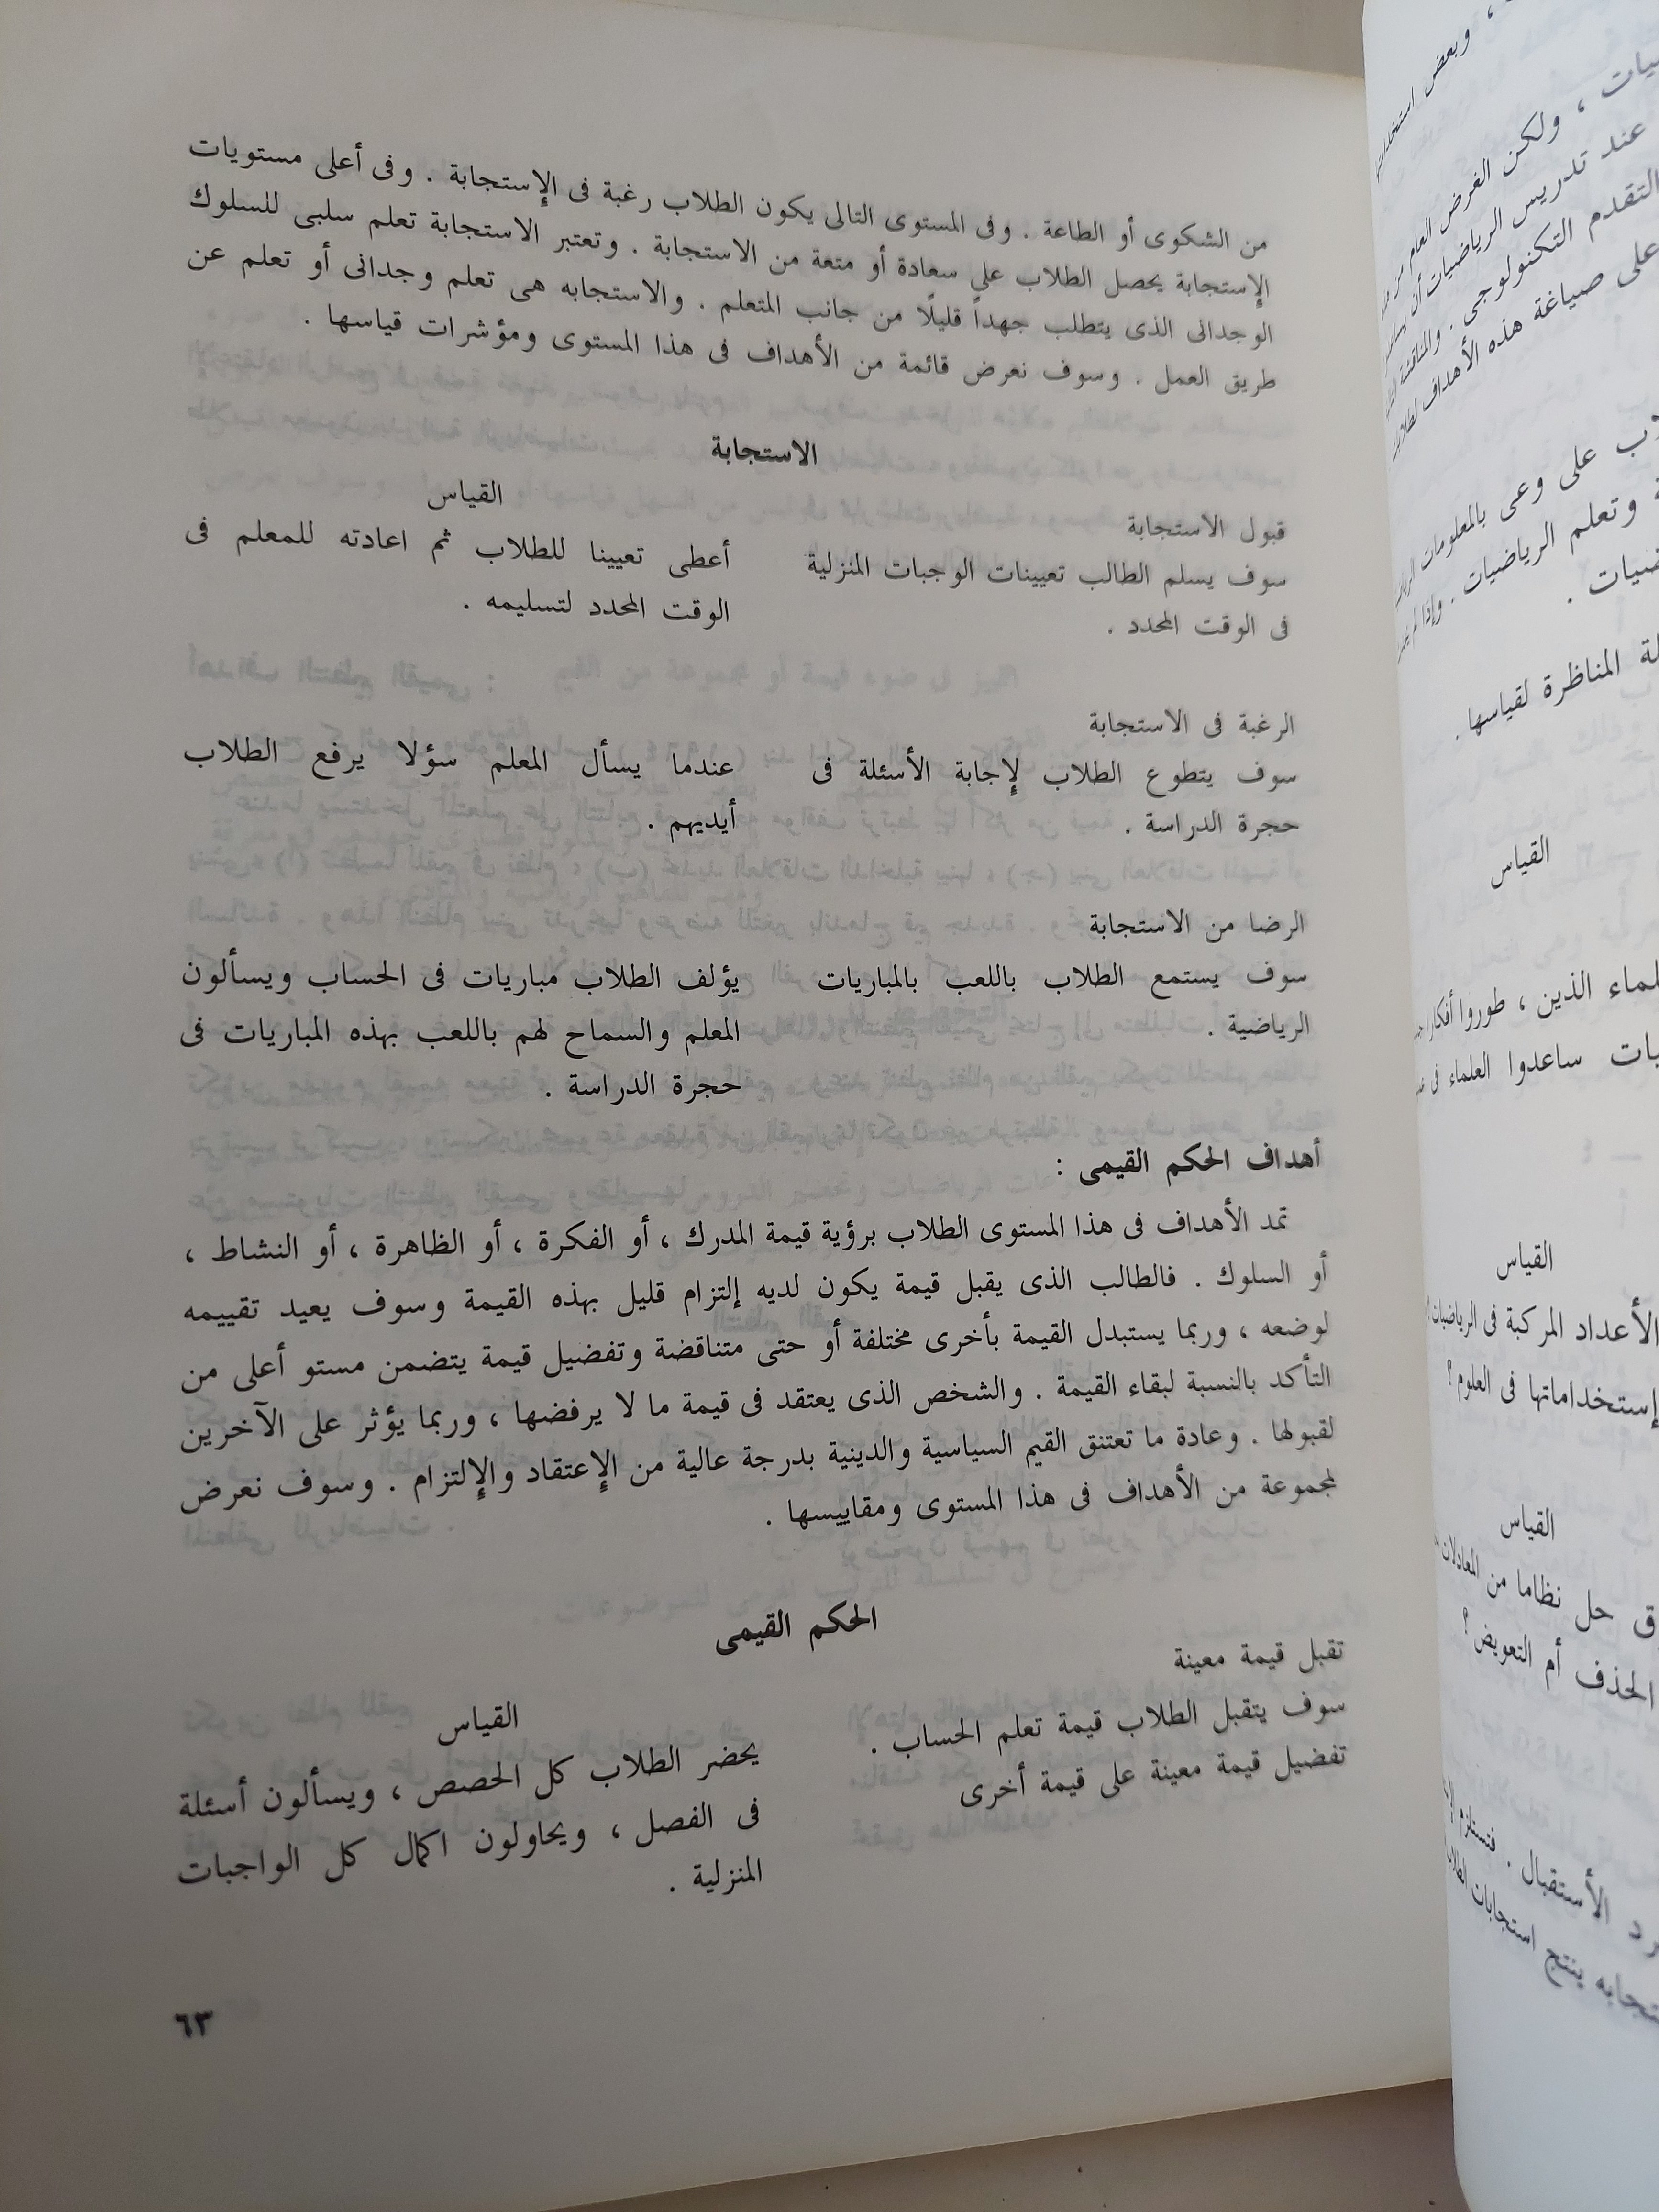 من الشكوى أو الطاعة . وفى المستوى التالى يكون الطلاب رغبة فى الإستجابة . وفى أعلى مستويات
الإستجابة يحصل الطلاب على سعادة أو متعة من الاستجابة . وتعتبر الاستجابة تعلم سلبى للسلوك
الوجدانى الذى يتطلب جهداً قليلًا من جانب المتعلم . والاستجابه هى تعلم وجدانى أو تعلم عن
طريق العمل . وسوف نعرض قائمة من الأهداف فى هذا المستوى ومؤشرات قياسها .
الاستجابة
قبول الاستجابة
سوف يسلم الطالب تعيينات الوجبات المنزلية
فى الوقت المحدد .
القياس
أعطى تعيينا للطلاب ثم اعادته للمعلم فى
الوقت المحدد لتسليمه .
الرغبة فى الاستجابة
سوف يتطوع الطلاب لإجابة الأسئلة فى
حجرة الدراسة .
عندما يسأل المعلم سؤلا يرفع الطلاب
أيديهم .
الرضا من الاستجابة
سوف يستمع الطلاب باللعب بالمباريات
الرياضية .
يؤلف الطلاب مباريات فى الحساب ويسألون
المعلم والسماح لهم باللعب بهذه المباريات فى
حجرة الدراسة .
أهداف الحكم القيمى :
تمد الأهداف فى هذا المستوى الطلاب برؤية قيمة المدرك ، أو الفكرة ، أو الظاهرة ، أو النشاط ،
أو السلوك . فالطالب الذى يقبل قيمة يكون لديه إلتزام قليل بهذه القيمة وسوف يعيد تقييمه
لوضعه ، وربما يستبدل القيمة بأخرى مختلفة أو حتى متناقضة وتفضيل قيمة يتضمن مستو أعلى من
التأكد بالنسبة لبقاء القيمة . والشخص الذى يعتقد فى قيمة ما لا يرفضها ، وربما يؤثر على الآخرين
لقبولها . وعادة ما تعتنق القيم السياسية والدينية بدرجة عالية من الإعتقاد والإلتزام . وسوف نعرض
لمجموعة من الأهداف فى هذا المستوى ومقاييسها .
الحكم القيمى
تقبل قيمة معينة
سوف يتقبل الطلاب قيمة تعلم الحساب .
تفضيل قيمة معينة على قيمة أخرى
القياس
يحضر الطلاب كل الحصص ، ويسألون أسئلة
فى الفصل ، ويحاولون اكمال كل الواجبات
المنزلية .
٦٣
، ولكن الغرض العام من
عند تدريس الرياضيات أن
التقدم التكنولوجى . والمناقشة
على صياغة هذه الأهداف
على وعى بالمعلومات
وتعلم الرياضيات . وإذا لم
المناظرة لقياسها .
القياس
الذين ، طوروا
ساعدوا العلماء فى
القياس
الأعداد المركبة فى
إستخداماتها فى العلوم ؟
القياس
حل نظاما من المعادلات
الحذف أم التعويض ؟
الأستقبال . فتستلزم
ينتج استجابات